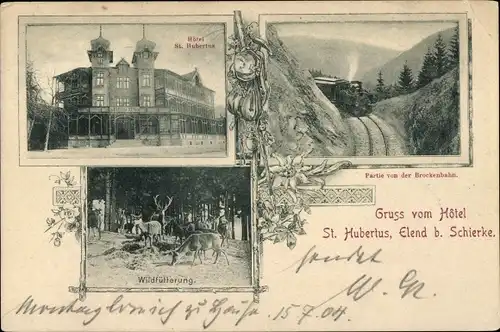 Hôtel
St. Hubertus
Partie von der Brockenbahn.
Gruss vom Hôtel
St. Hubertus, Elend b. Schierke.
Wildfütterung.
sendet
W. Gr.
Montag bin ich zu Hause 15.7.04.